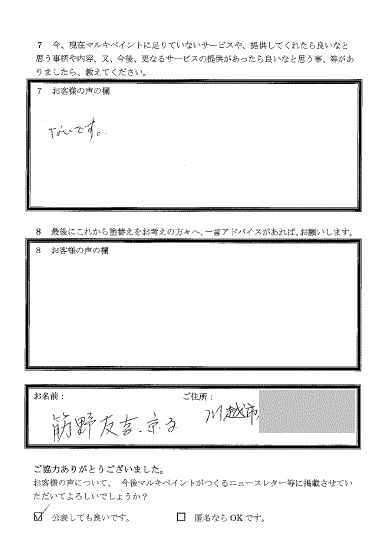 7 今、現在マルキペイントに足りていないサービスや、提供してくれたら良いなと
思う事柄や内容、又、今後、更なるサービスの提供があったら良いなと思う事、等があ
りましたら、教えてください。
7 お客様の声の欄
ないです。
8 最後にこれから塗替えをお考えの方々へ、一言アドバイスがあれば、お願いします。
8 お客様の声の欄
お名前: ご住所:
筋野友吉.京子 川越市
ご協力ありがとうございました。
お客様の声について、今後マルキペイントがつくるニュースレター等に掲載させてい
ただいてよろしいでしょうか?
☑ 公表しても良いです。 □ 匿名なら OK です。